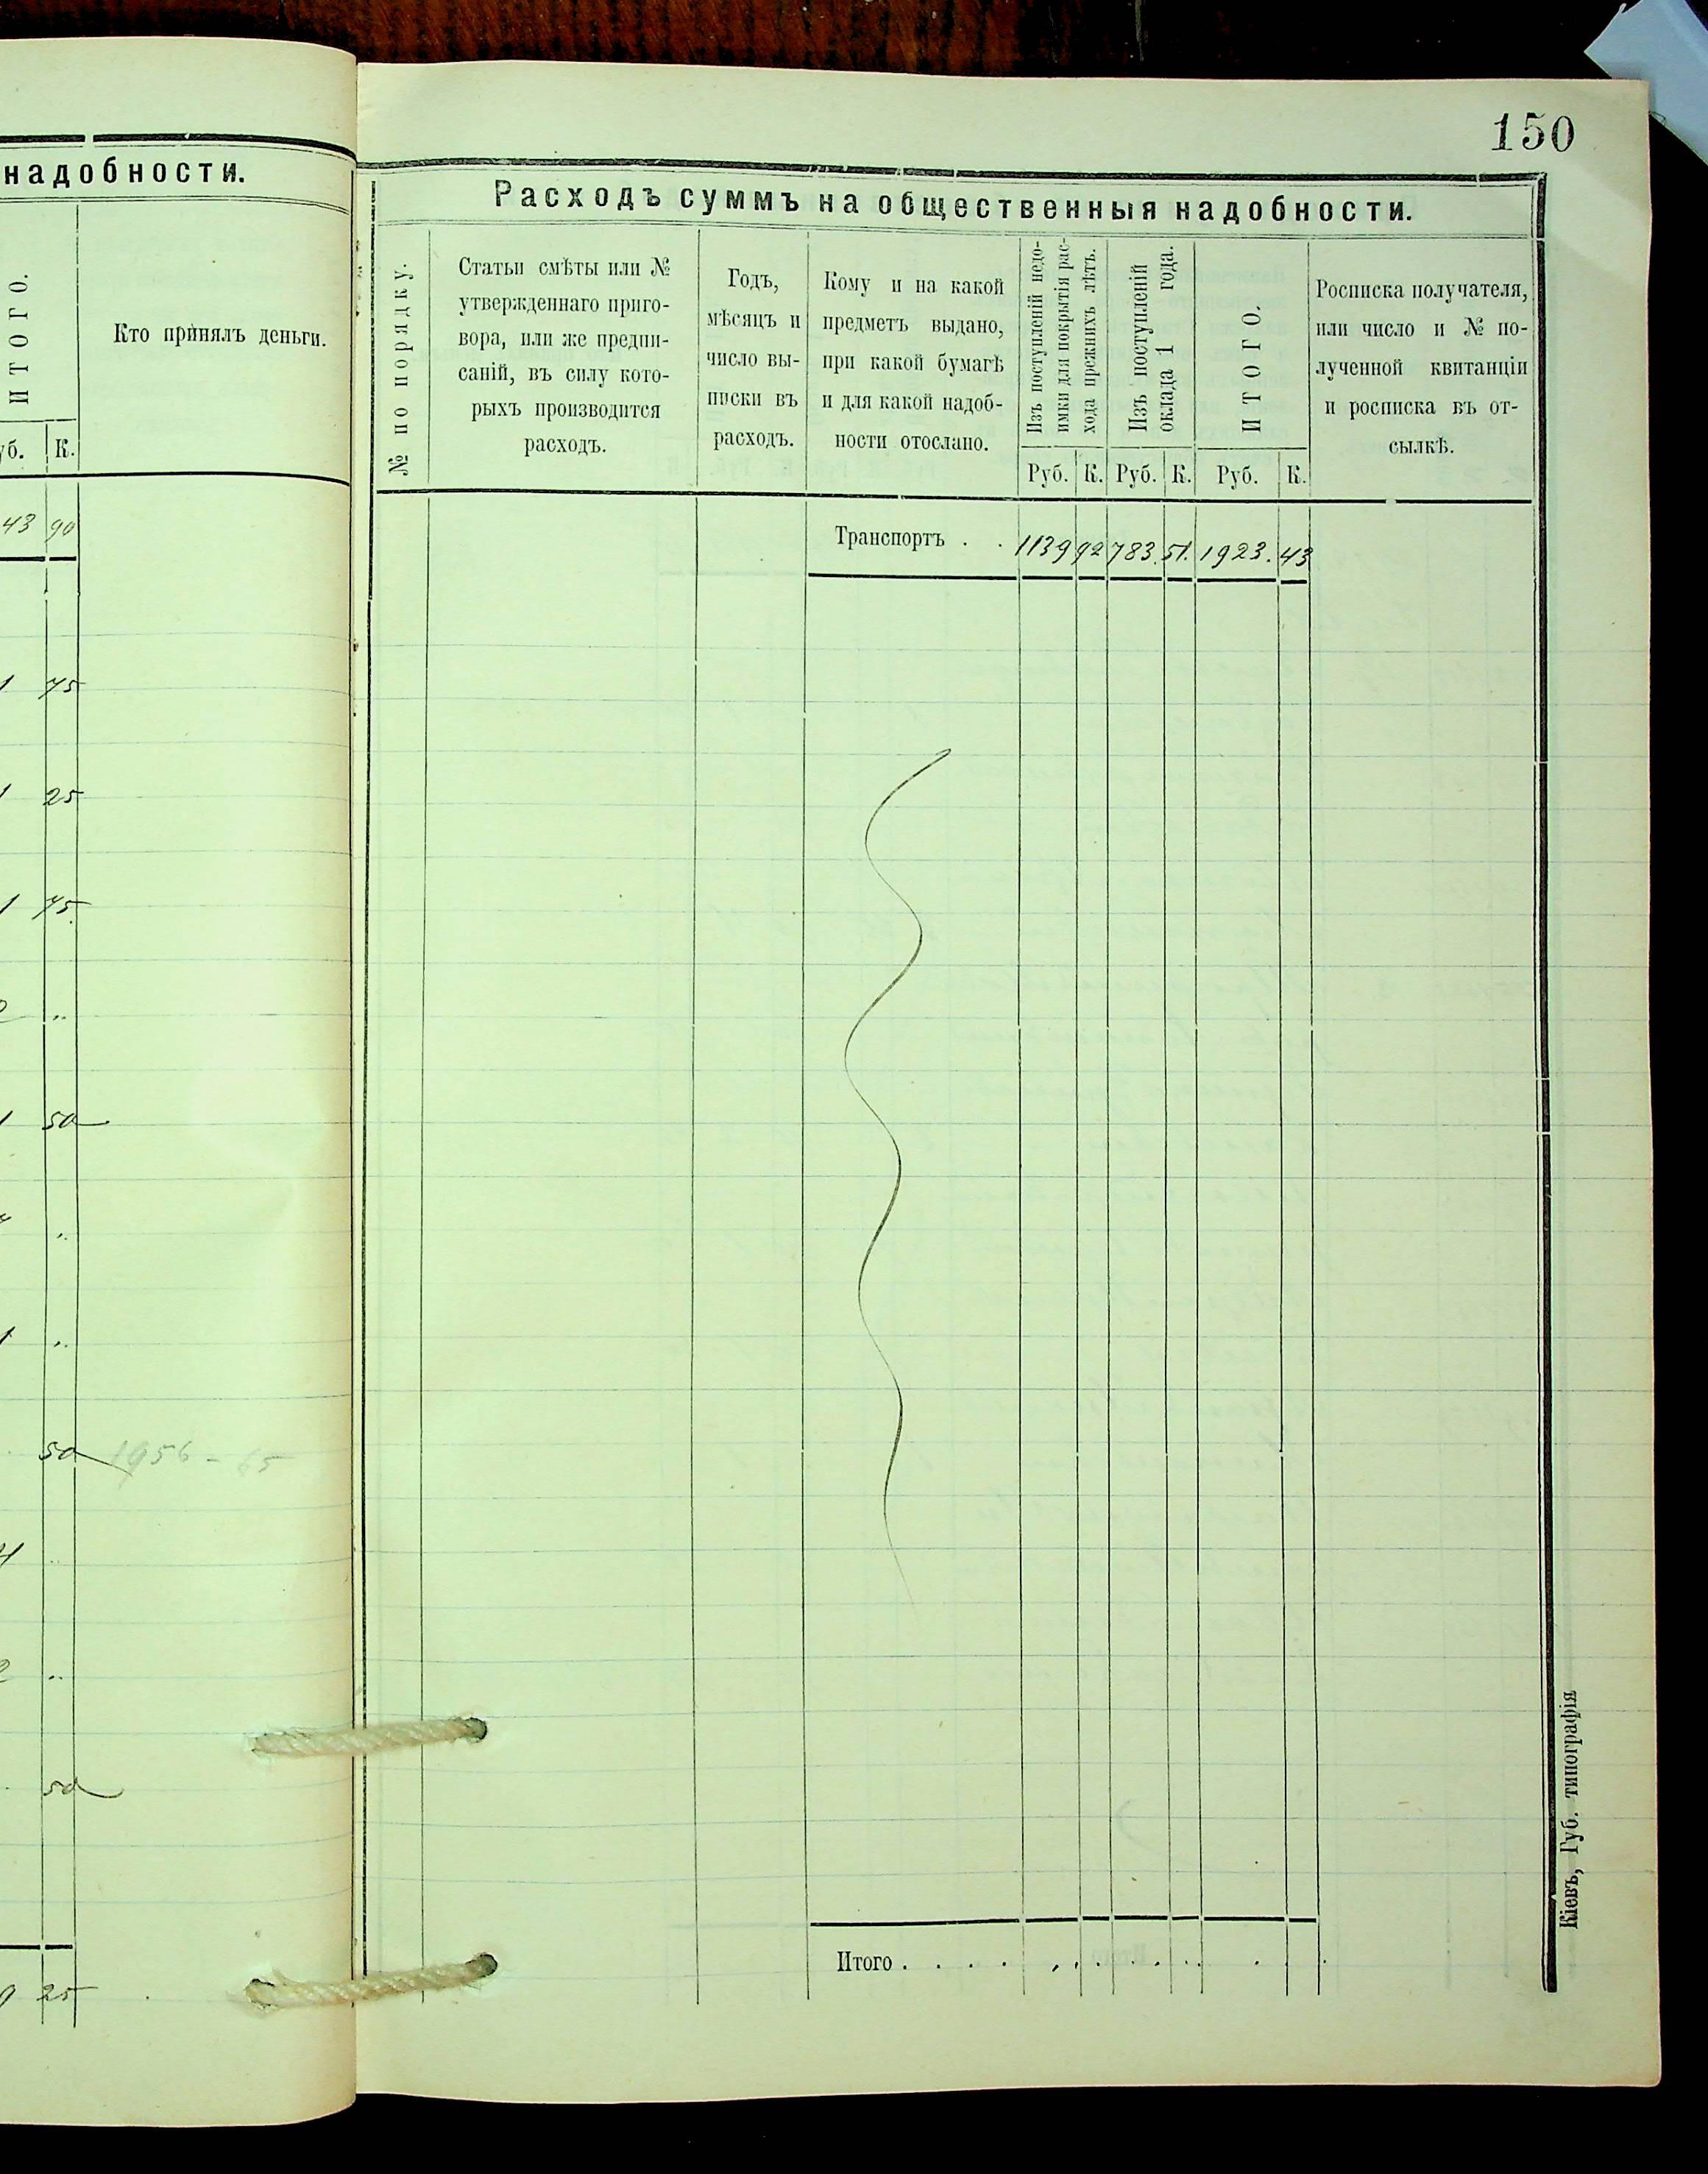 надобности.
ИТОГО.
Кто принялъ деньги.
К.
43 90
75
25
75
50
50 1956 - 65
50
25
150
Расходъ суммъ на общественныя надобности.
№ по порядку.
Статьи смѣты или №
утвержденнаго приго-
вора, или же предпи-
саній, въ силу кото-
рыхъ производится
расходъ.
Годъ,
мѣсяцъ и
число вы-
писки въ
расходъ.
Кому и на какой
предметъ выдано,
при какой бумагѣ
и для какой надоб-
ности отослано.
Изъ поступленій недо-
имки для покрытія рас-
хода прежнихъ лѣтъ.
Изъ поступленій
оклада 1 года.
ИТОГО.
Росписка получателя,
или число и № по-
лученной квитанціи
и росписка въ от-
сылкѣ.
Руб. К. Руб. К. Руб. К.
Транспортъ . . 1139 92 783. 51. 1923. 43
Итого . . . .
Кіевъ, Губ. типографія